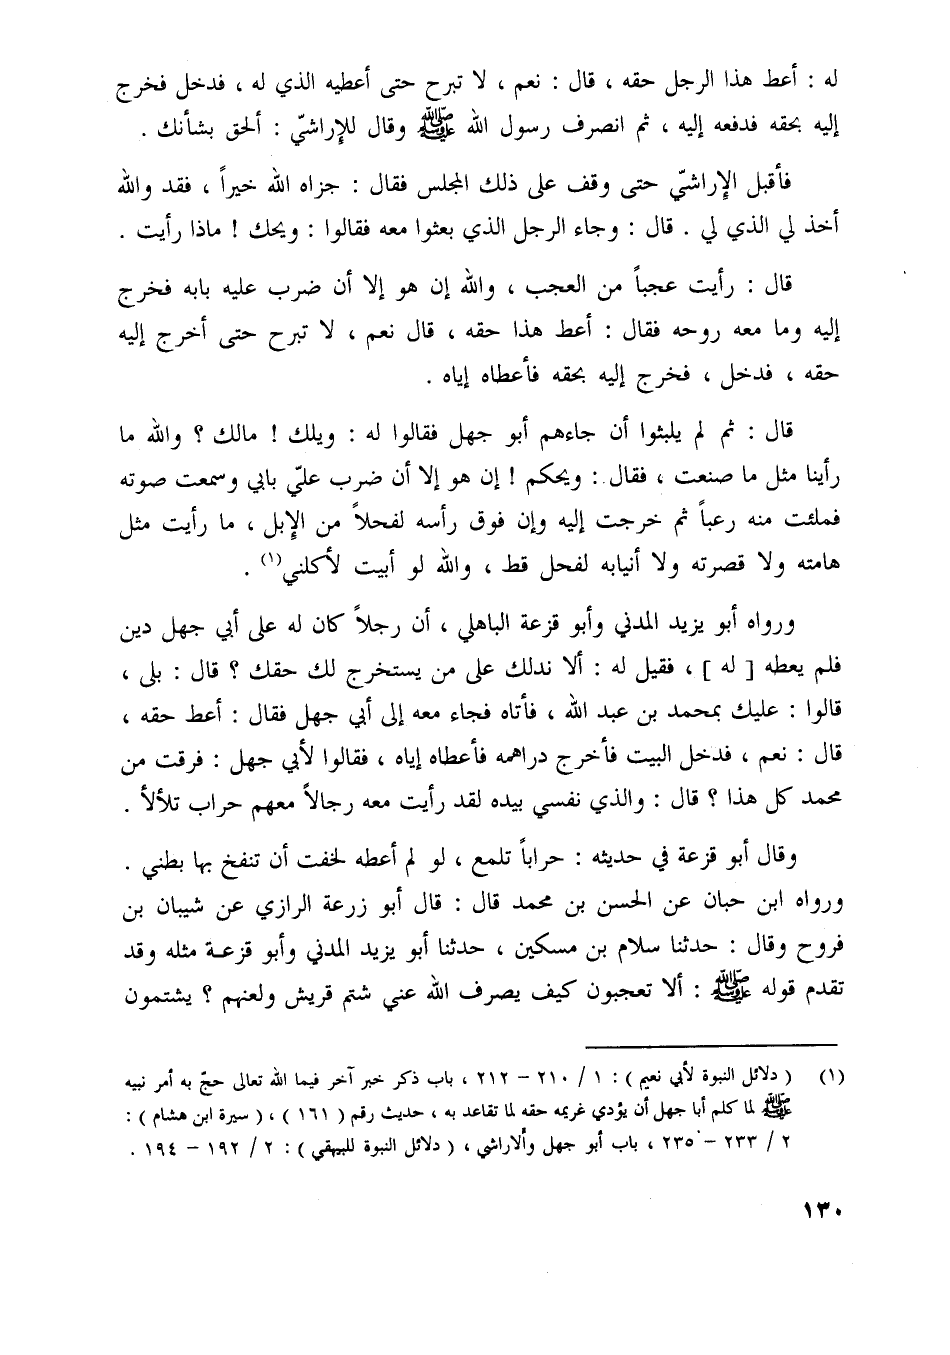 له : أعط هذا الرجل حقه ، قال : نعم ، لا تبرح حتى أعطيه الذي له ، فدخل فخرج
إليه بحقه فدفعه إليه ، ثم انصرف رسول الله ﷺ وقال للإراشيّ : ألحق بشأنك .
فأقبل الإراشيّ حتى وقف على ذلك المجلس فقال : جزاه الله خيراً ، فقد والله
أخذ لي الذي لي . قال : وجاء الرجل الذي بعثوا معه فقالوا : ويحك ! ماذا رأيت .
قال : رأيت عجباً من العجب ، والله إن هو إلا أن ضرب عليه بابه فخرج
إليه وما معه روحه فقال : أعط هذا حقه ، قال نعم ، لا تبرح حتى أخرج إليه
حقه ، فدخل ، فخرج إليه بحقه فأعطاه إياه .
قال : ثم لم يلبثوا أن جاءهم أبو جهل فقالوا له : ويلك ! مالك ؟ والله ما
رأينا مثل ما صنعت ، فقال : ويحكم ! إن هو إلا أن ضرب عليّ بابي وسمعت صوته
فملئت منه رعباً ثم خرجت إليه وإن فوق رأسه لفحلاً من الإبل ، ما رأيت مثل
هامته ولا قصرته ولا أنيابه لفحل قط ، والله لو أبيت لأكلني(١) .
ورواه أبو يزيد المدني وأبو قزعة الباهلي ، أن رجلاً كان له على أبي جهل دين
فلم يعطه [ له ] ، فقيل له : ألا ندلك على من يستخرج لك حقك ؟ قال : بلى ،
قالوا : عليك بمحمد بن عبد الله ، فأتاه فجاء معه إلى أبي جهل فقال : أعط حقه ،
قال : نعم ، فدخل البيت فأخرج دراهمه فأعطاه إياه ، فقالوا لأبي جهل : فرقت من
محمد كل هذا ؟ قال : والذي نفسي بيده لقد رأيت معه رجالاً معهم حراب تلألأ .
وقال أبو قزعة في حديثه : حراباً تلمع ، لو لم أعطه لخفت أن تنفخ بها بطني .
ورواه ابن حبان عن الحسن بن محمد قال : قال أبو زرعة الرازي عن شيبان بن
فروح وقال : حدثنا سلام بن مسكين ، حدثنا أبو يزيد المدني وأبو قزعة مثله وقد
تقدم قوله ﷺ : ألا تعجبون كيف يصرف الله عني شتم قريش ولعنهم ؟ يشتمون
(١) ( دلائل النبوة لأبي نعيم ) : ١ / ٢١٠ – ٢١٢ ، باب ذكر خبر آخر فيما الله تعالى حجّ به أمر نبيه
ﷺ لما كلم أبا جهل أن يؤدي غريمه حقه لما تقاعد به ، حديث رقم ( ١٦١ ) ، ( سيرة ابن هشام ) :
٢ / ٢٣٣ – ٢٣٥ ، باب أبو جهل والاراشي ، ( دلائل النبوة للبيهقي ) : ٢ / ١٩٢ – ١٩٤ .
١٣٠